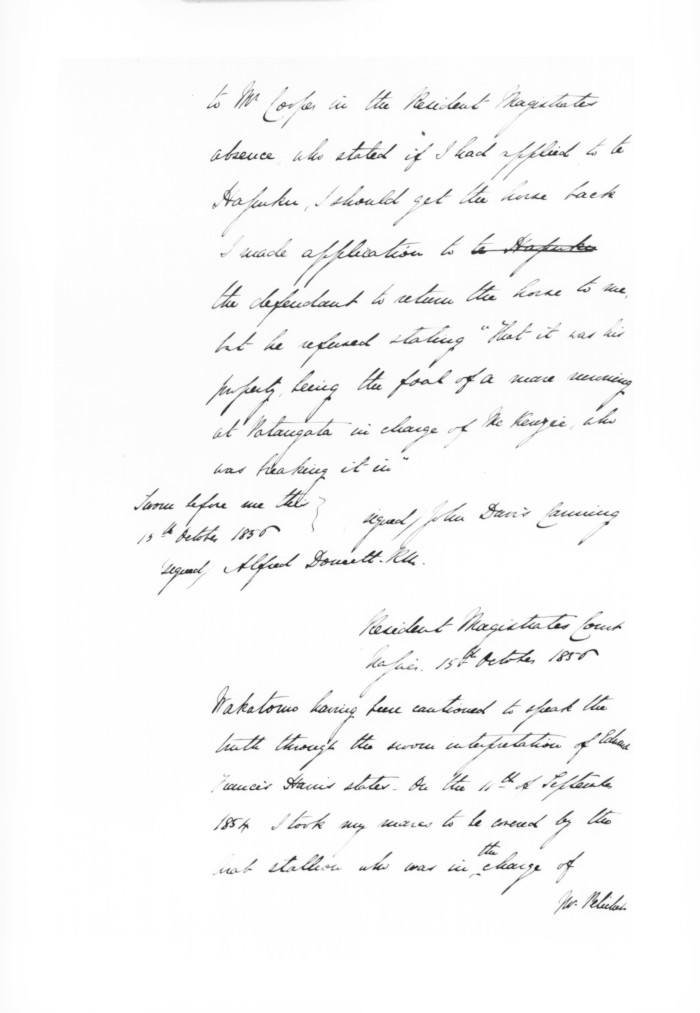 to Mr Cooper in the Resident Magistrates
absence who stated "if I had applied to te
Hapuku, I should get the horse back
I made application to te Hapuku
the defendant to return the horse to me,
but he refused stating "That it was his
property, being the foal of a mare running
at Patangata in charge of McKenzie, who
was breaking it in"
Sworn before me this
15th October 1856
signed/ John Davis Canning
signed/ Alfred Domett. R.M.
Resident Magistrates Court
Napier. 15th October 1856
Wakatomo having been cautioned to speak the
truth through the sworn interpretation of Edward
Francis Harris states. On the 11th of September
1854 I took my mares to be covered by the
stallion who was in the charge of
Mr.